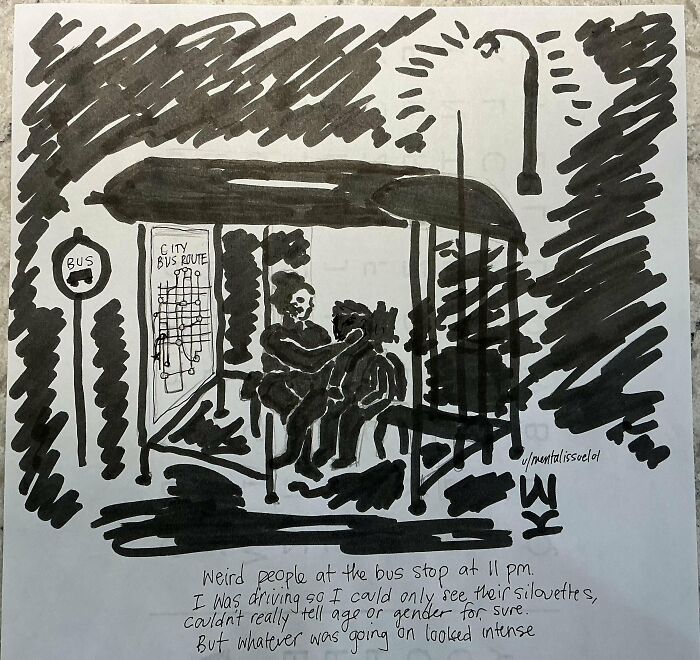 CITY
BUS ROUTE
BUS
u/mentalissuelol
KW
Weird people at the bus stop at 11 pm.
I was driving so I could only see their silouettes,
couldn't really tell age or gender for sure.
But whatever was going on looked intense